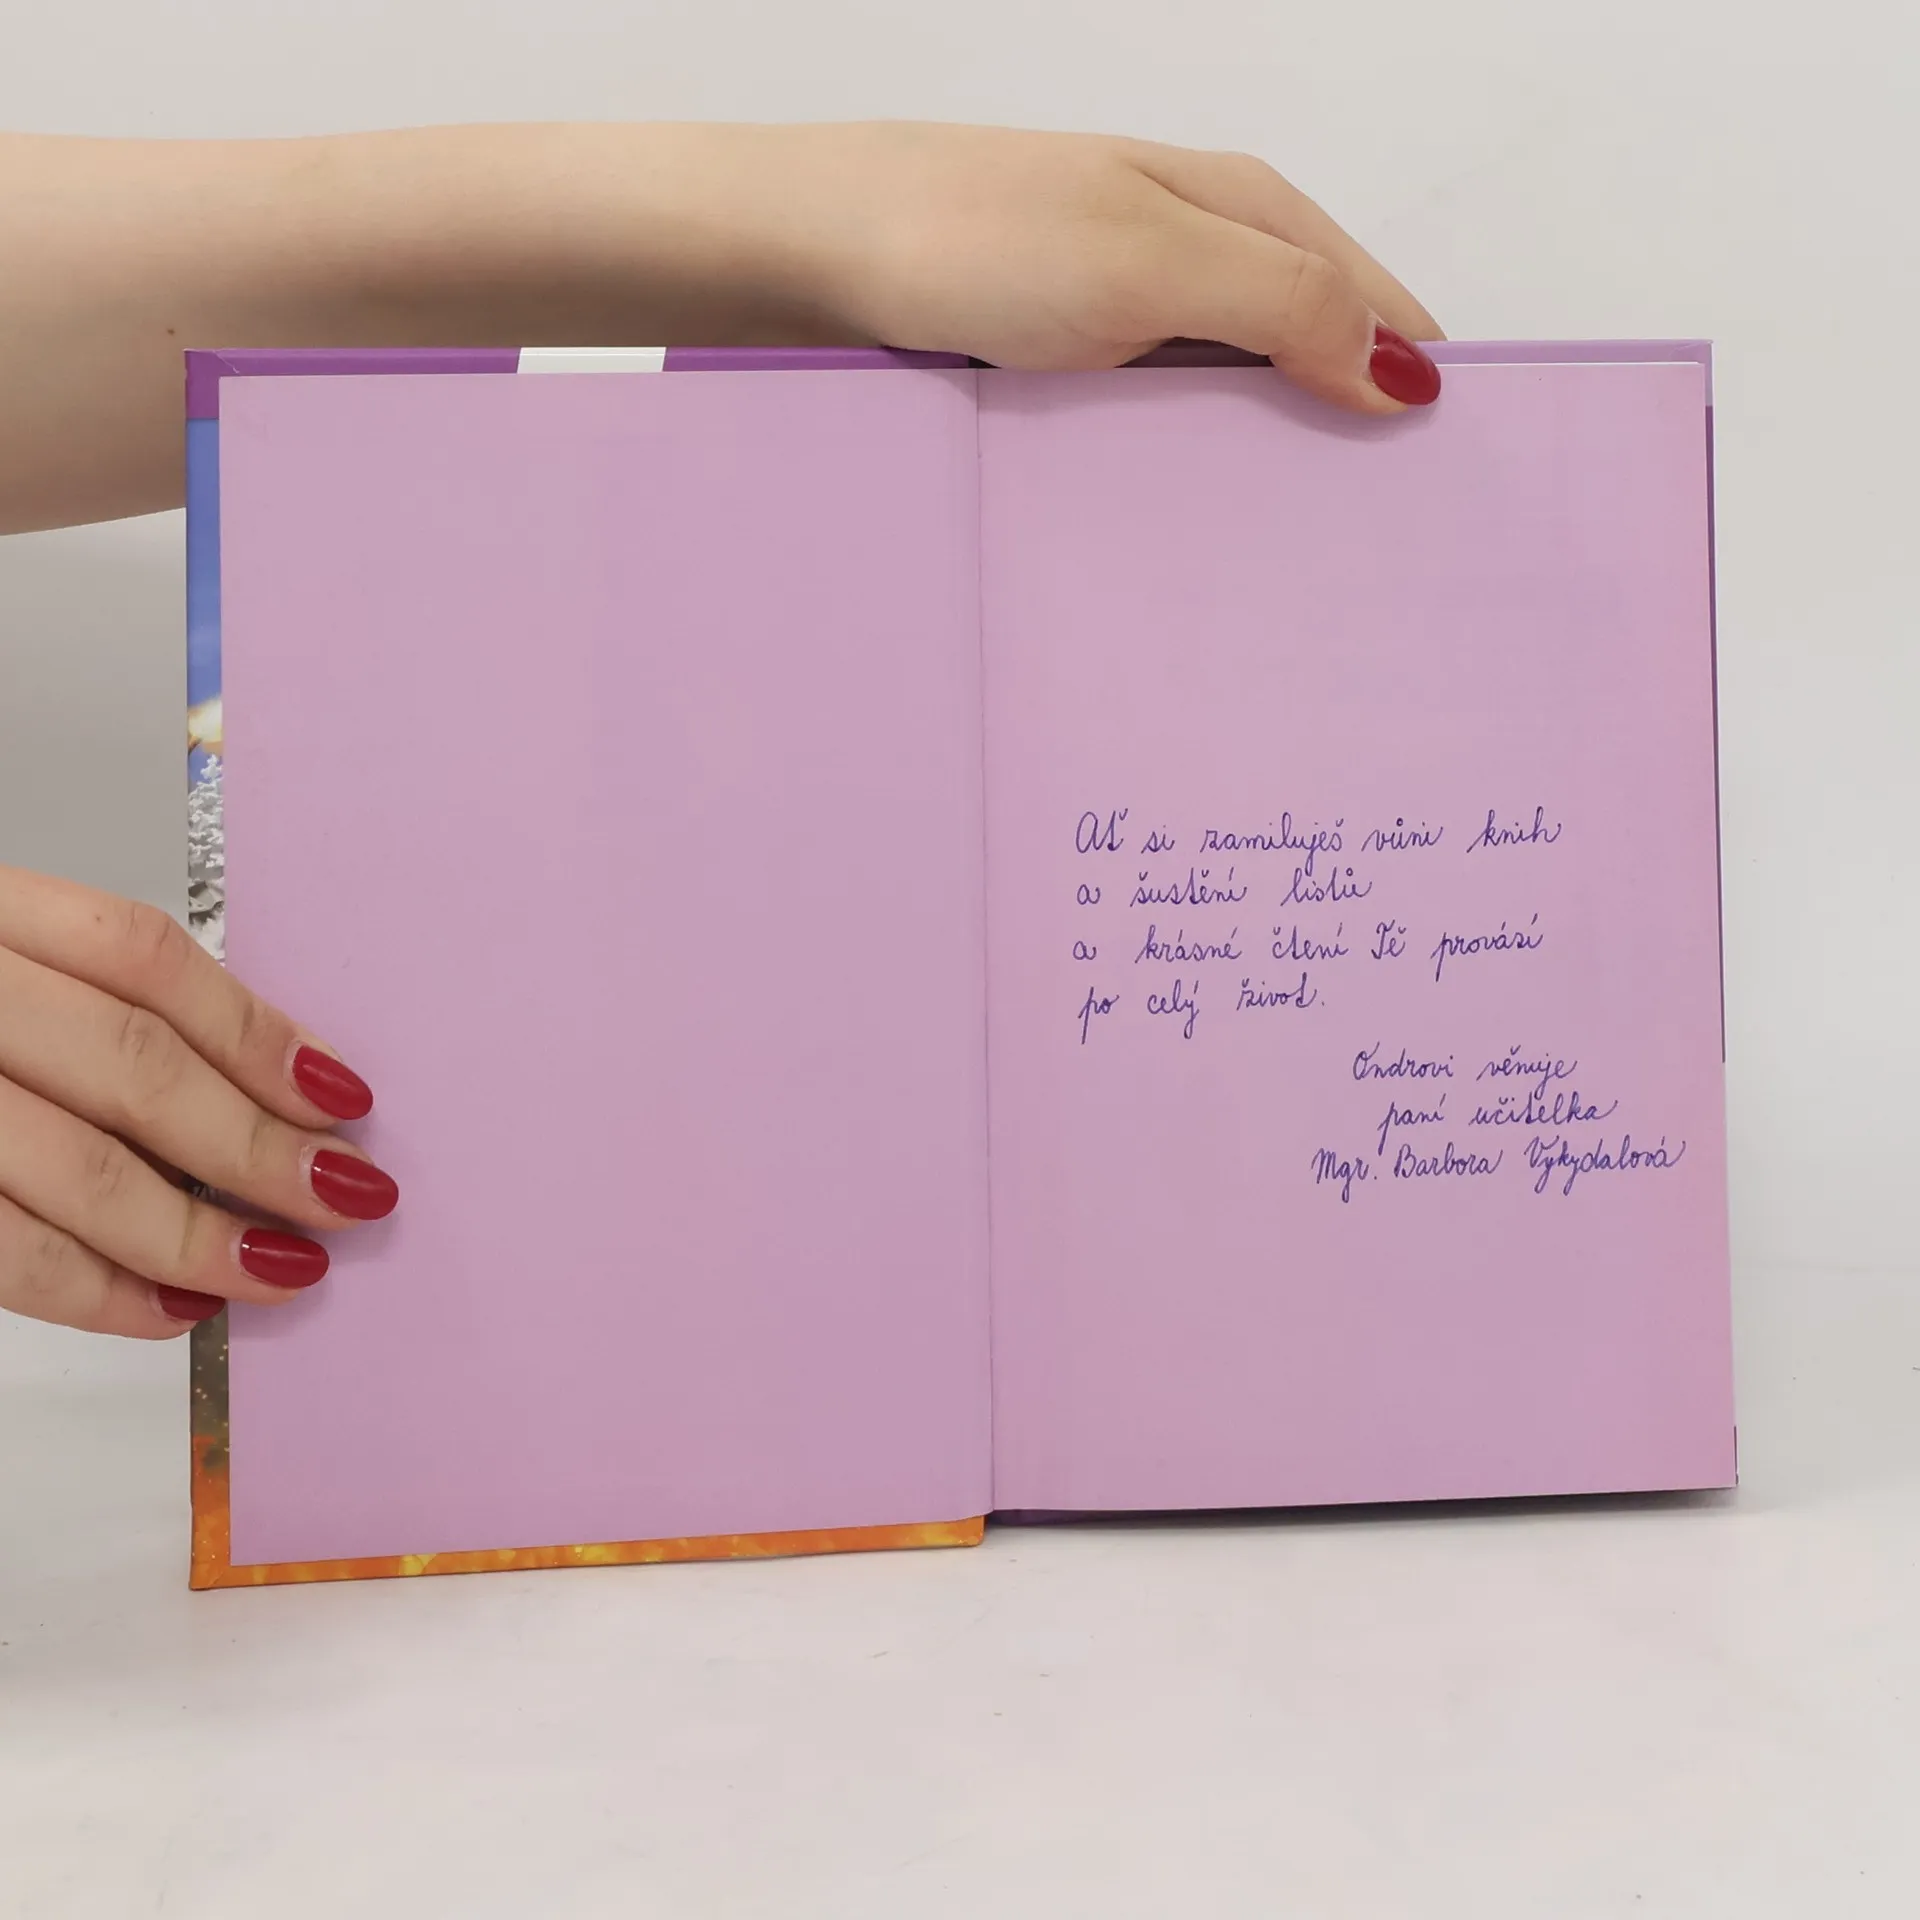 Ať si zamiluješ vůni knih
a šustění listů
a krásné čtení Tě provází
po celý život.
Ondrovi věnuje
paní učitelka
Mgr. Barbora Vykydalová